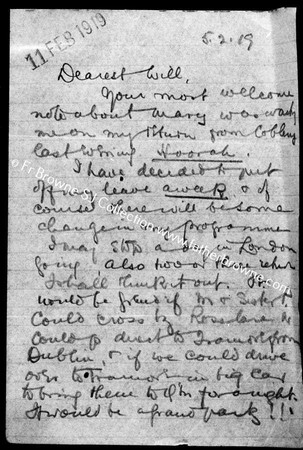 11 FEB 1919
5.2.19
Dearest Will,
Your most welcome
note about Mary was
me on my return from Coblenz
last evening Hoorah.
I have decided to put
off leave a week & of
course there will be some
change in programme
I may stop a in London
going also two or
I shall think it out. It
would be grand if M &
could cross by Rosslare &
could go direct to Tramore from
Dublin & if we could drive
over to Tramore in big car
to bring them to for a night
It would be a grand party!!!
Fr Browne SJ Collection
www.fatherbrowne.com